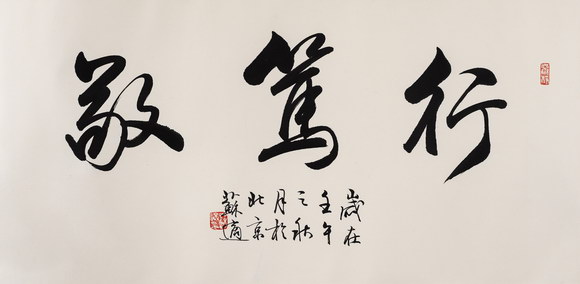 行篤敬
歲在
壬午
之秋
月於
北京
蘇適